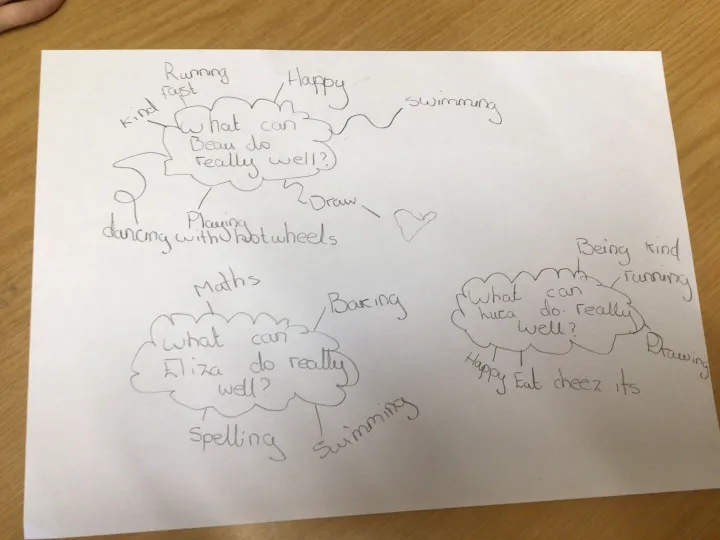 Running
fast
Happy
Kind
swimming
What can
Beau do
really well?
Draw
Playing
dancing with hotwheels
Maths
Baking
What can
Eliza do really
well?
Spelling
Swimming
Being kind
running
What can
huca do really
well?
Drawing
Happy
Eat cheez its